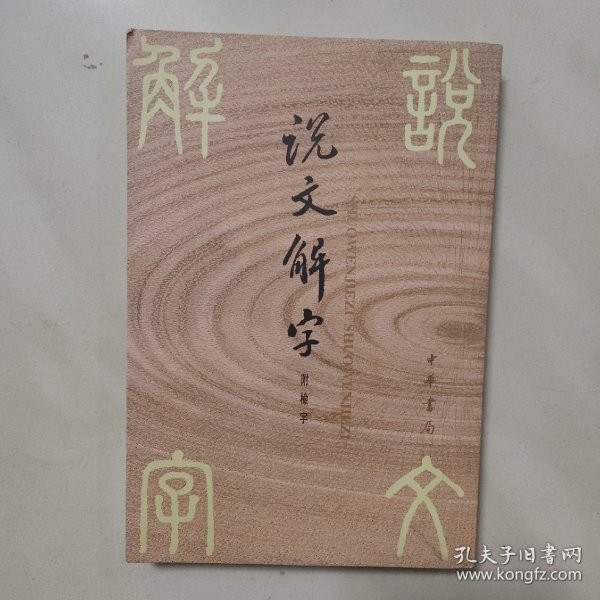 說文
解字
说文解字
附檢字
SHUOWEN JIEZI SHUOWEN JIEZI
中華書局
孔夫子旧书网
www.kongfz.com